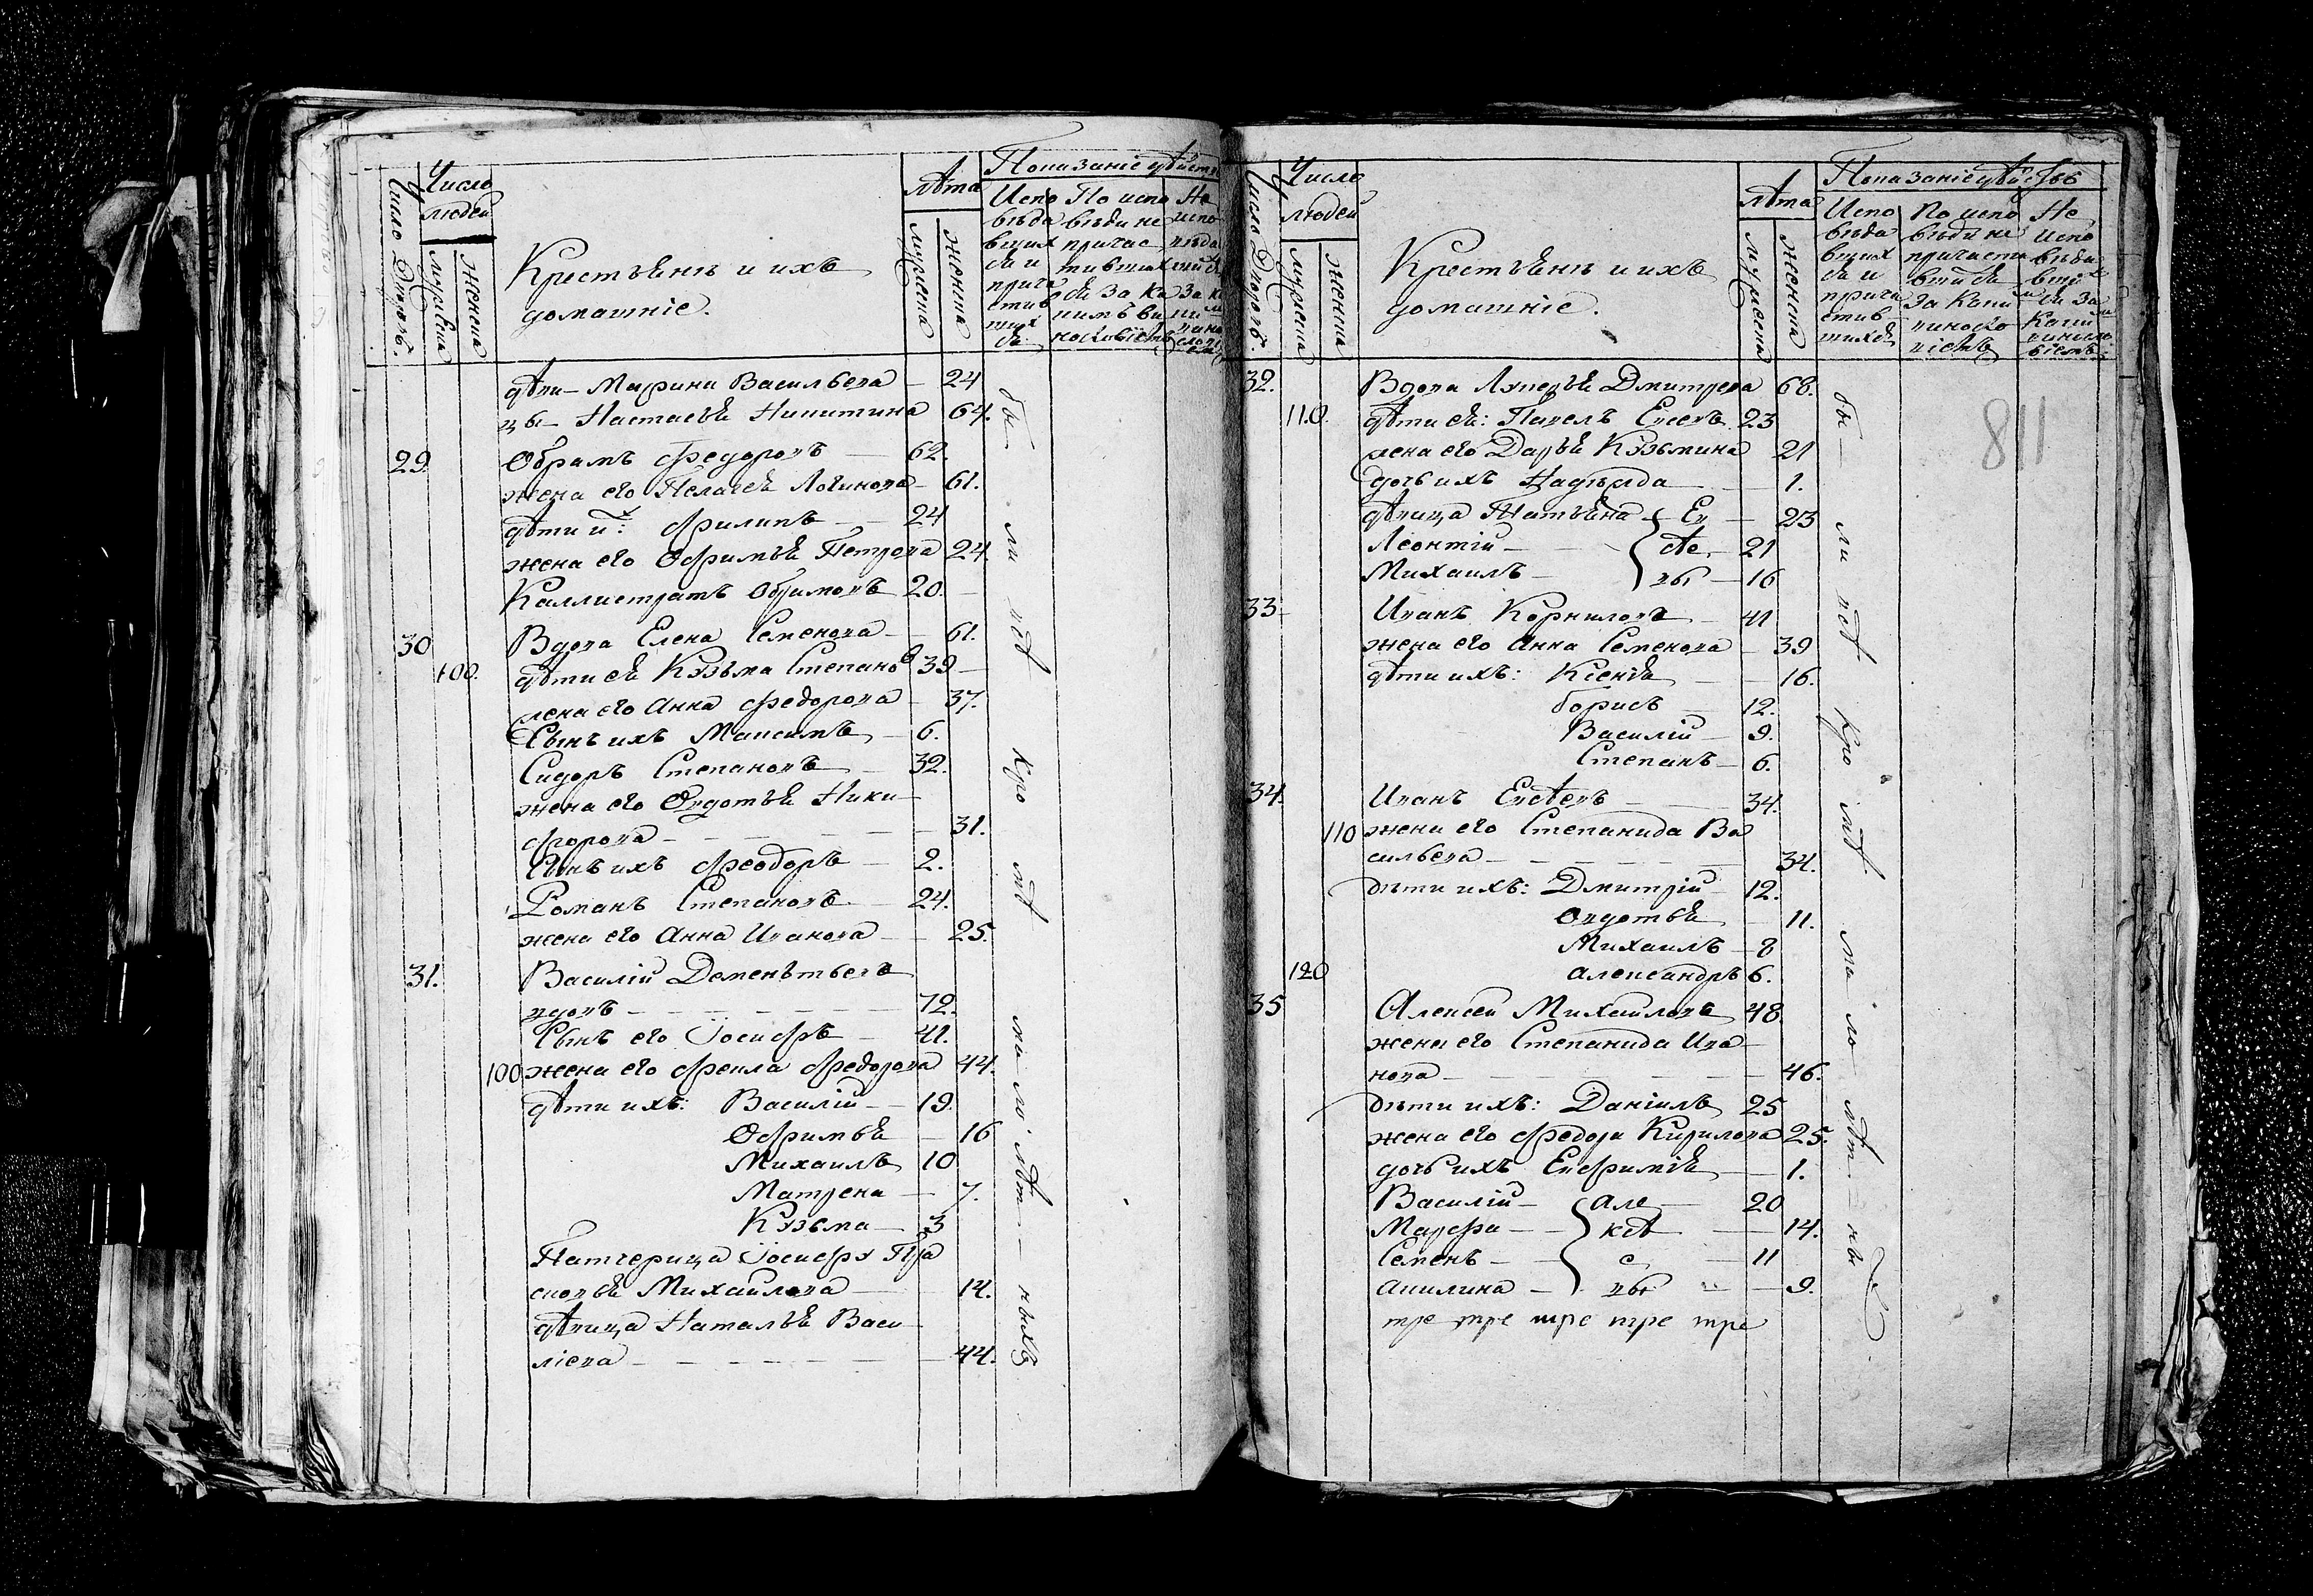 Число Дворовъ.
Число
людей
мужеска
женска
Крестьянъ и ихъ
домашніе.
Лѣта
мужеска
женска
Показаніе дѣйств
Испо
вѣда
вших
ся и
прича
стив
ших
ся
По испо
вѣди не
причас
тивших
ся за ка
кимъ ви
нословіемъ
Не
испо
вѣда
дѣви Марина Васильева 24
цы Настасья Никитина 64.
29. Обрамъ Федоровъ 62.
жена его Пелагѣя Логинова 61.
дѣти их: Филипъ 24
жена его Офимья Петрова 24.
Каллистратъ Обрамовъ 20.
30 Вдова Елена Семенова 61.
100. дѣти ея Кузьма Степановъ 39
жена его Анна Федорова 37.
Сынъ ихъ Максимъ 6.
Сидоръ Степановъ 32.
жена его Овдотья Ники
форова 31.
Сынъ ихъ Феодоръ 2.
Романъ Степановъ 24.
жена его Анна Иванова 25.
31. Василій Деменьтьевъ
вдовъ 72.
Сынъ его Іосифъ 41.
100 жена его Фекла Федорова 44.
дѣти ихъ: Василій 19.
Офимья 16
Михаилъ 10
Матрена 7.
Кузьма 3
Патчерица Іосифу Пра
сковья Михайлова 14.
дѣвица Наталья Васи
ліева 44.
бы ли всѣ кро мѣ ма ло лѣт ныхъ
Число Дворовъ.
Число
людей
мужеска
женска
Крестьянъ и ихъ
домашніе.
Лѣта
мужеска
женска
Показаніе дѣйствъ
Испо
вѣда
вших
ся и
прича
стив
шихся
По испо
вѣди не
причасти
вшися
за каки
Не
испо
вѣда
вших
ся за
каким
811
32. Вдова Лукерья Дмитрева 68.
110. дѣти ея: Павелъ Евсевъ 23
жена его Дарья Кузьмина 21
дочь ихъ Надежда 1.
дѣвица Татьяна Ев 23
Леонтій сѣе 21
Михаилъ вы 16
33 Иванъ Корниловъ 41
жена его Анна Семенова 39
дѣти ихъ: Ксенія 16.
Борисъ 12.
Василій 9.
Степанъ 6.
34. Иванъ Евсѣевъ 34.
110 жена его Степанида Ва
сильева 34.
дѣти ихъ: Дмитрій 12.
Овдотья 11.
Михаилъ 8
120 Александръ 6.
35 Алексей Михайловъ 48.
жена его Степанида Ива
нова 46.
дѣти ихъ: Даніилъ 25
жена его Федора Кирилова 25.
дочь ихъ Евфимія 1.
Василій Але 20
Марфа ксѣ 14.
Семенъ е 11
Акилина вы 9.
тре тре тре тре тре
бы ли всѣ кро мѣ ма ло лѣт ны х